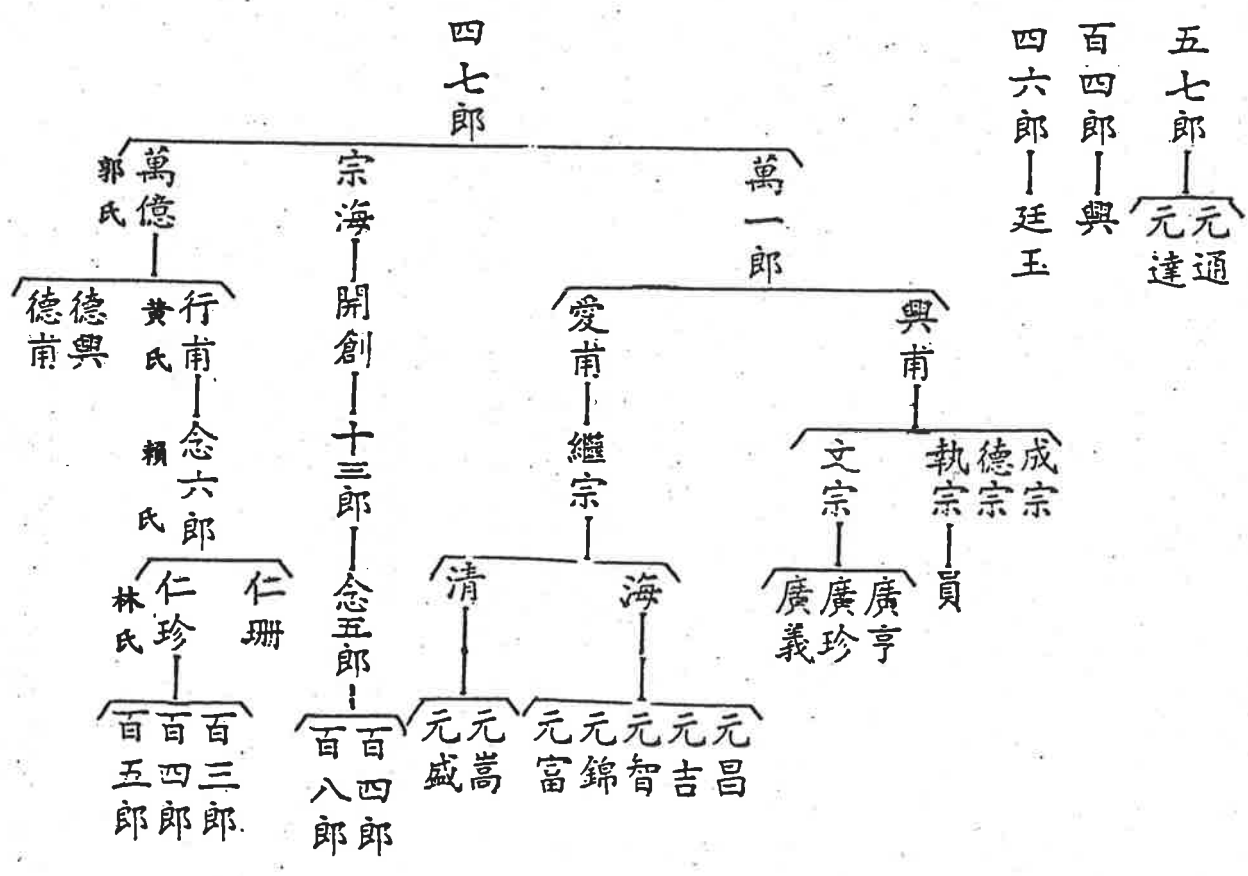 五七郎
元通
元達
百四郎
興
四六郎
廷玉
四七郎
萬一郎
興甫
成宗
德宗
執宗
員
文宗
廣亨
廣珍
廣義
愛甫
繼宗
海
元昌
元吉
元智
元錦
元富
清
元嵩
元盛
宗海
開創
十三郎
念五郎
百四郎
百八郎
萬億
郭氏
行甫
黄氏
德興
德甫
念六郎
賴氏
仁珊
仁珍
林氏
百三郎
百四郎
百五郎